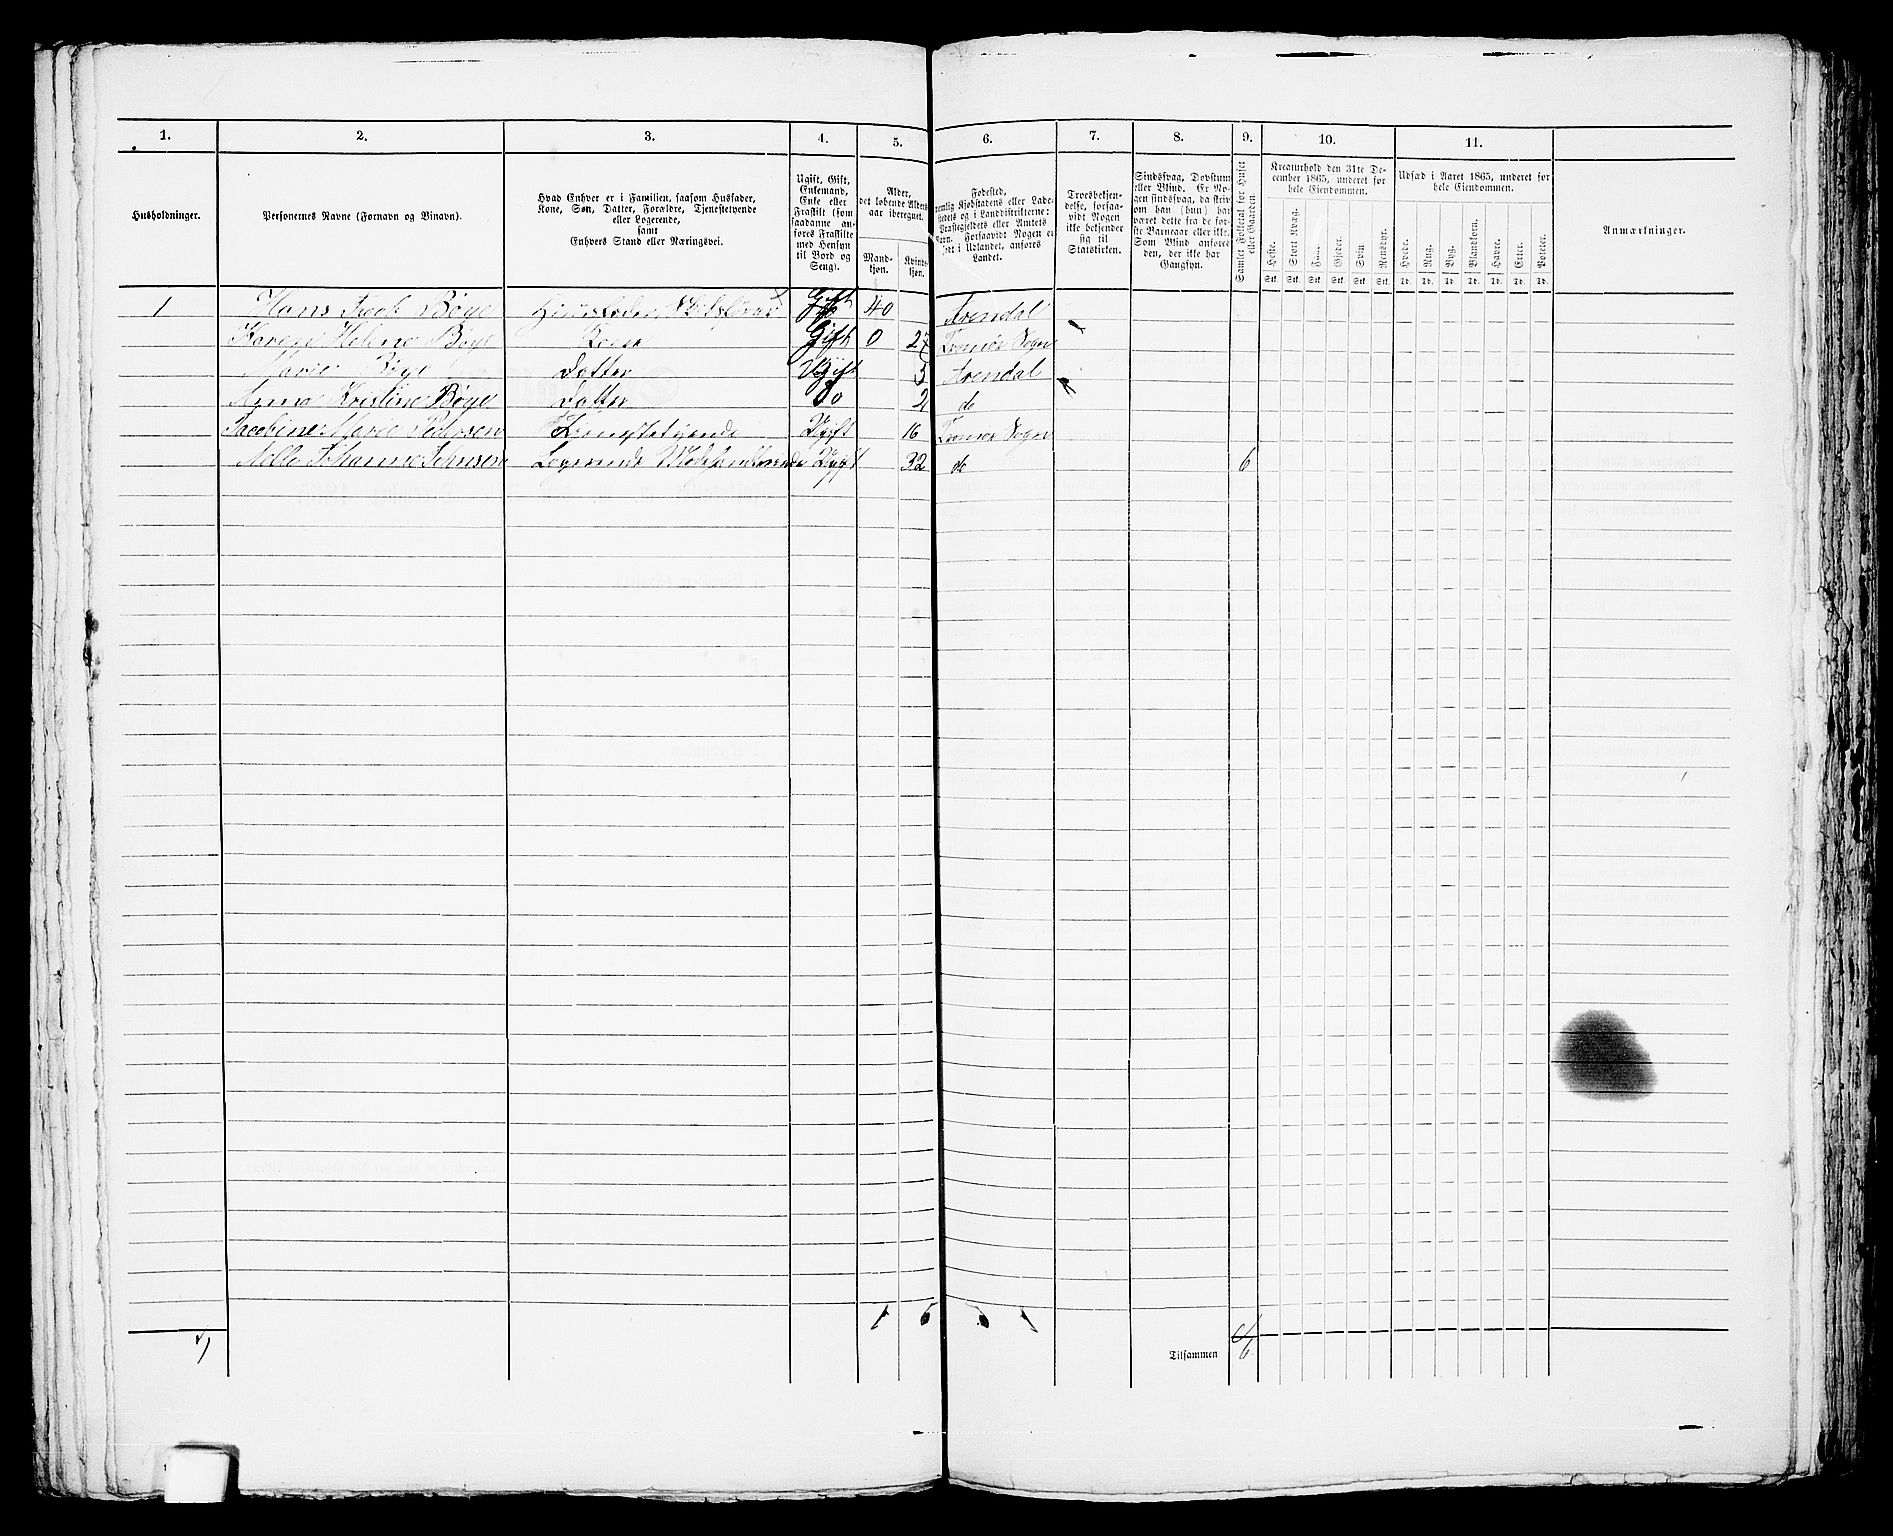 1. 2. 3. 4. 5. 6. 7. 8. 9. 10. 11.
Husholdninger.
Personernes Navne (Fornavn og Binavn).
Hvad Enhver er i Familien, saasom Husfader,
Kone, Søn, Datter, Forældre, Tjenestetyende
eller Logerende,
samt
Enhvers Stand eller Næringsvei.
Ugift, Gift,
Enkemand,
Enke eller
Fraskilt (som
saadanne an-
føres Fraskilte
med Hensyn
til Bord og
Seng).
Alder,
det løbende Alders-
aar iberegnet.
Mand-
kjøn.
Kvinde-
kjøn.
Fødested,
nemlig Kjøbstadens eller Lade-
stedets og i Landdistrikterne:
Præstegjeldets eller Amtets
Navn. Forsaavidt Nogen er
født i Udlandet, anføres
Landet.
Troesbekjen-
delse, forsaa-
vidt Nogen
ikke bekjender
sig til
Statskirken.
Sindssvag, Døvstum
eller Blind. Er No-
gen sindssvag, da skriv
om han (hun) har
været dette fra de før-
ste Barneaar eller ikke.
Som Blind anføres
den, der ikke har
Gangsyn.
Samlet Folketal for Huset
eller Gaarden.
Kreaturhold den 31te De-
cember 1865, underet for
hele Eiendommen.
Heste. Stort Kvæg. Faar. Gjeder. Svin Rensdyr.
Stk. Stk. Stk. Stk. Stk. Stk.
Udsæd i Aaret 1865, underet for
hele Eiendommen.
Hvede. Rug. Byg. Blandkorn. Havre. Erter. Poteter.
Td. Td. Td. Td. Td. Td. Td.
Anmærkninger.
1 Hans Fredk Bøye Huusfader Skibsfører Gift 40 Arendal
Karen Helene Bøye Kone Gift 0 27 Tromøe Sogn
Marie Bøye Datter Ugift 5 Arendal
Anna Kristine Bøye Datter Do 2 do
Jacobine Marie Pedersen Tjenestetyende Ugift 16 Tromøe Sogn
Logerende Ugift 32 do 6
1 5 5 1
Tilsammen 6